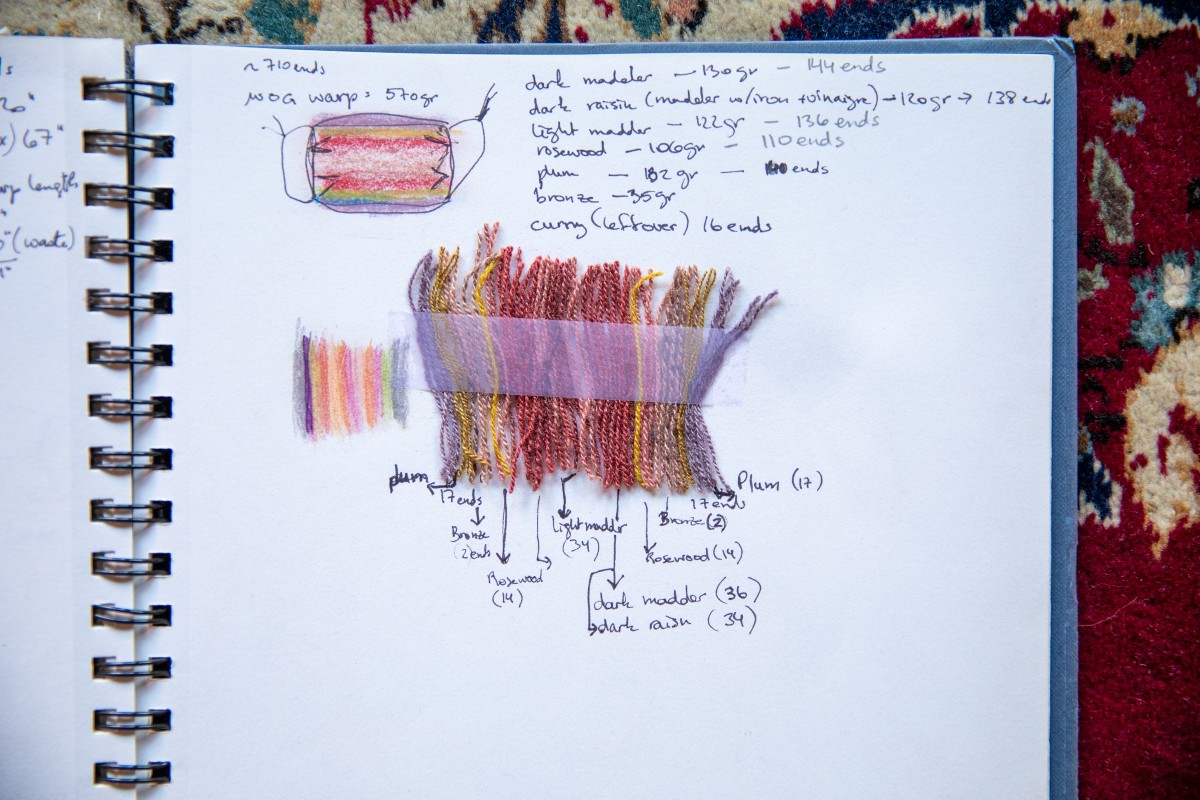 s
20"
x) 67"
rp length
"
5" (waste)
1"
~ 710 ends
WOG WARP: 570gr
dark madder — 130gr — 144 ends
dark raisin (madder w/iron + vinaigre) → 120gr → 138 ends
light madder — 122gr — 136 ends
rosewood — 106gr — 110 ends
plum — 182gr — ends
bronze — 35gr
curry (leftover) 16 ends
plum
17 ends
Plum (17)
17 ends
Bronze
(2) ends
Light madder
(34)
Bronze (2)
Rosewood
(14)
Rosewood (14)
dark madder (36)
dark raisin (34)